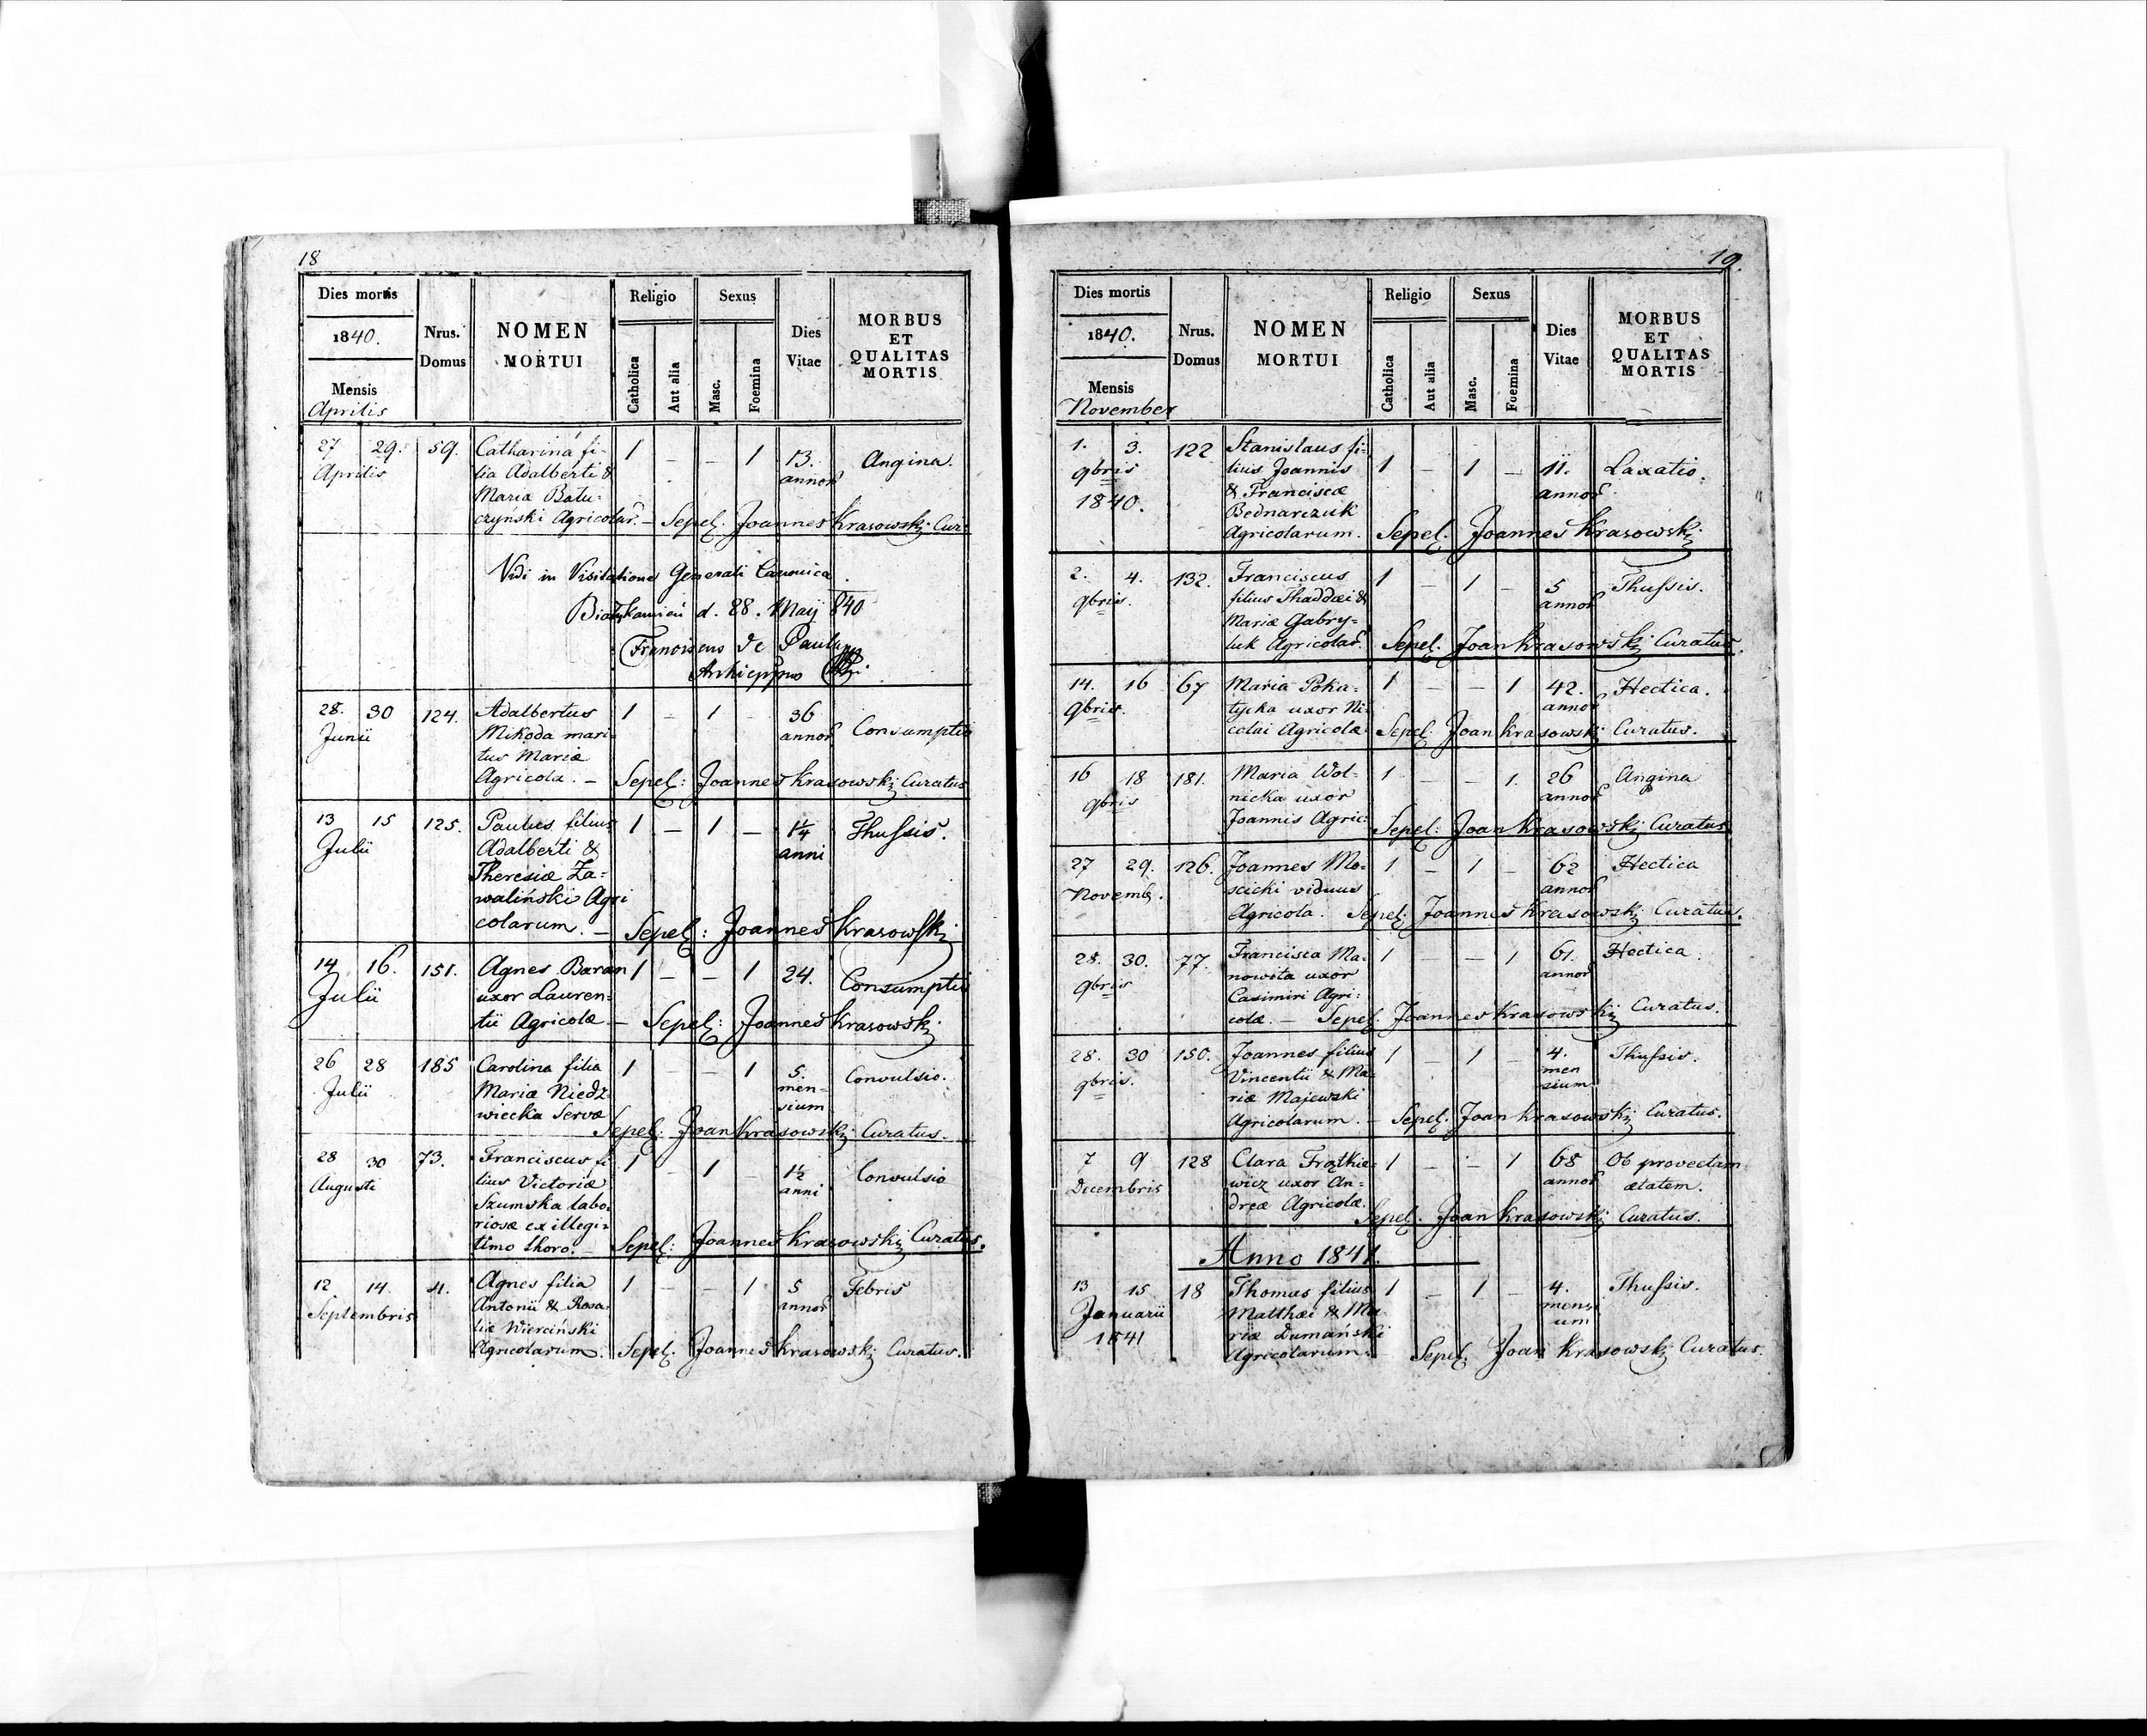 18
Dies mortis
1840.
Mensis
Aprilis
Nrus.
Domus
NOMEN
MORTUI
Religio
Catholica
Aut alia
Sexus
Masc.
Foemina
Dies
Vitae
MORBUS
ET
QUALITAS
MORTIS
27 29. 59. Catharina fi- 1 — — 1 13. Angina.
Aprilis lia Adalberti & annor
Mariæ Batu-
czyński Agricolar. — Sepel: Joannes Krasowski Cur:
Vidi in Visitatione Generali Canonica
d. 28. Maij 840
Franciscus de Paula
Archieppus
28. 30 124. Adalbertus 1 — 1 — 36 Consumptio
Junii Mikoda mari- annor
tus Mariæ
Agricola. — Sepel: Joannes Krasowski Curatus
13 15 125. Paulus filius 1 — 1 — 1¼ Thussis.
Julii Adalberti & anni
Theresiæ Za-
waliński Agri
colarum. — Sepel: Joannes Krasowski
14 16. 151. Agnes Baran 1 — — 1 24. Consumptio
Julii uxor Lauren-
tii Agricolæ — Sepel: Joannes Krasowski
26 28 185 Carolina filia 1 — — 1 5. Convulsio.
Julii Mariæ Niedz- men-
wiecka Servæ sium
Sepel: Joan Krasowski Curatus.
28 30 73. Franciscus fi- 1 — 1 — 1½ Convulsio
Augusti lius Victoriæ anni
Szumska labo-
riosæ ex illegi-
timo thoro. — Sepel: Joannes Krasowski Curatus.
12 14 4. Agnes filia 1 — — 1 5 Febris
Septembris Antonii & Rosa- annor
liæ Wierciński
Agricolarum. Sepel: Joannes Krasowski Curatus.
19.
Dies mortis
1840.
Mensis
November
Nrus.
Domus
NOMEN
MORTUI
Religio
Catholica
Aut alia
Sexus
Masc.
Foemina
Dies
Vitae
MORBUS
ET
QUALITAS
MORTIS
1. 3. 122 Stanislaus fi- 1 — 1 — 11. Laxatio.
9bris lius Joannis annor
1840. & Franciscæ
Bednarczuk
Agricolarum. Sepel: Joannes Krasowski
2. 4. 132. Franciscus 1 — 1 — 5 Thussis.
9bris. filius Thaddæi & annor
Mariæ Gabry-
luk Agricolar. Sepel: Joan Krasowski Curatus.
14. 16 67 Maria Poka- 1 — — 1 42. Hectica.
9bris. tycka uxor Ni- annor
colai Agricolæ Sepel: Joan Krasowski Curatus.
16 18 181. Maria Wol- 1 — — 1. 26 Angina
9bris nicka uxor annor
Joannis Agric: Sepel: Joan Krasowski Curatus
27 29. 126. Joannes Mo- 1 — 1 — 62 Hectica
Novemb. scicki viduus annor
Agricola. Sepel: Joannes Krasowski Curatus.
28. 30. 77. Francisca Ma- 1 — — 1 61. Hectica.
9bris nowita uxor annor
Casimiri Agri-
colæ. — Sepel: Joannes Krasowski Curatus.
28. 30 150. Joannes filius 1 — 1 — 4. Thussis.
9bris. Vincentii & Ma- men
riæ Majewski sium
Agricolarum. — Sepel: Joan Krasowski Curatus.
7 9 128 Clara 1 — — 1 68 Ob provectam
Decembris wicz uxor An- annor ætatem.
dreæ Agricolæ.
Sepel: Joan Krasowski Curatus.
Anno 1841.
13 15 18 Thomas filius 1 — 1 — 4. Thussis.
Januarii Matthæi & Ma- mensi
1841 riæ Dumański um
Agricolarum. Sepel: Joan Krasowski Curatus.